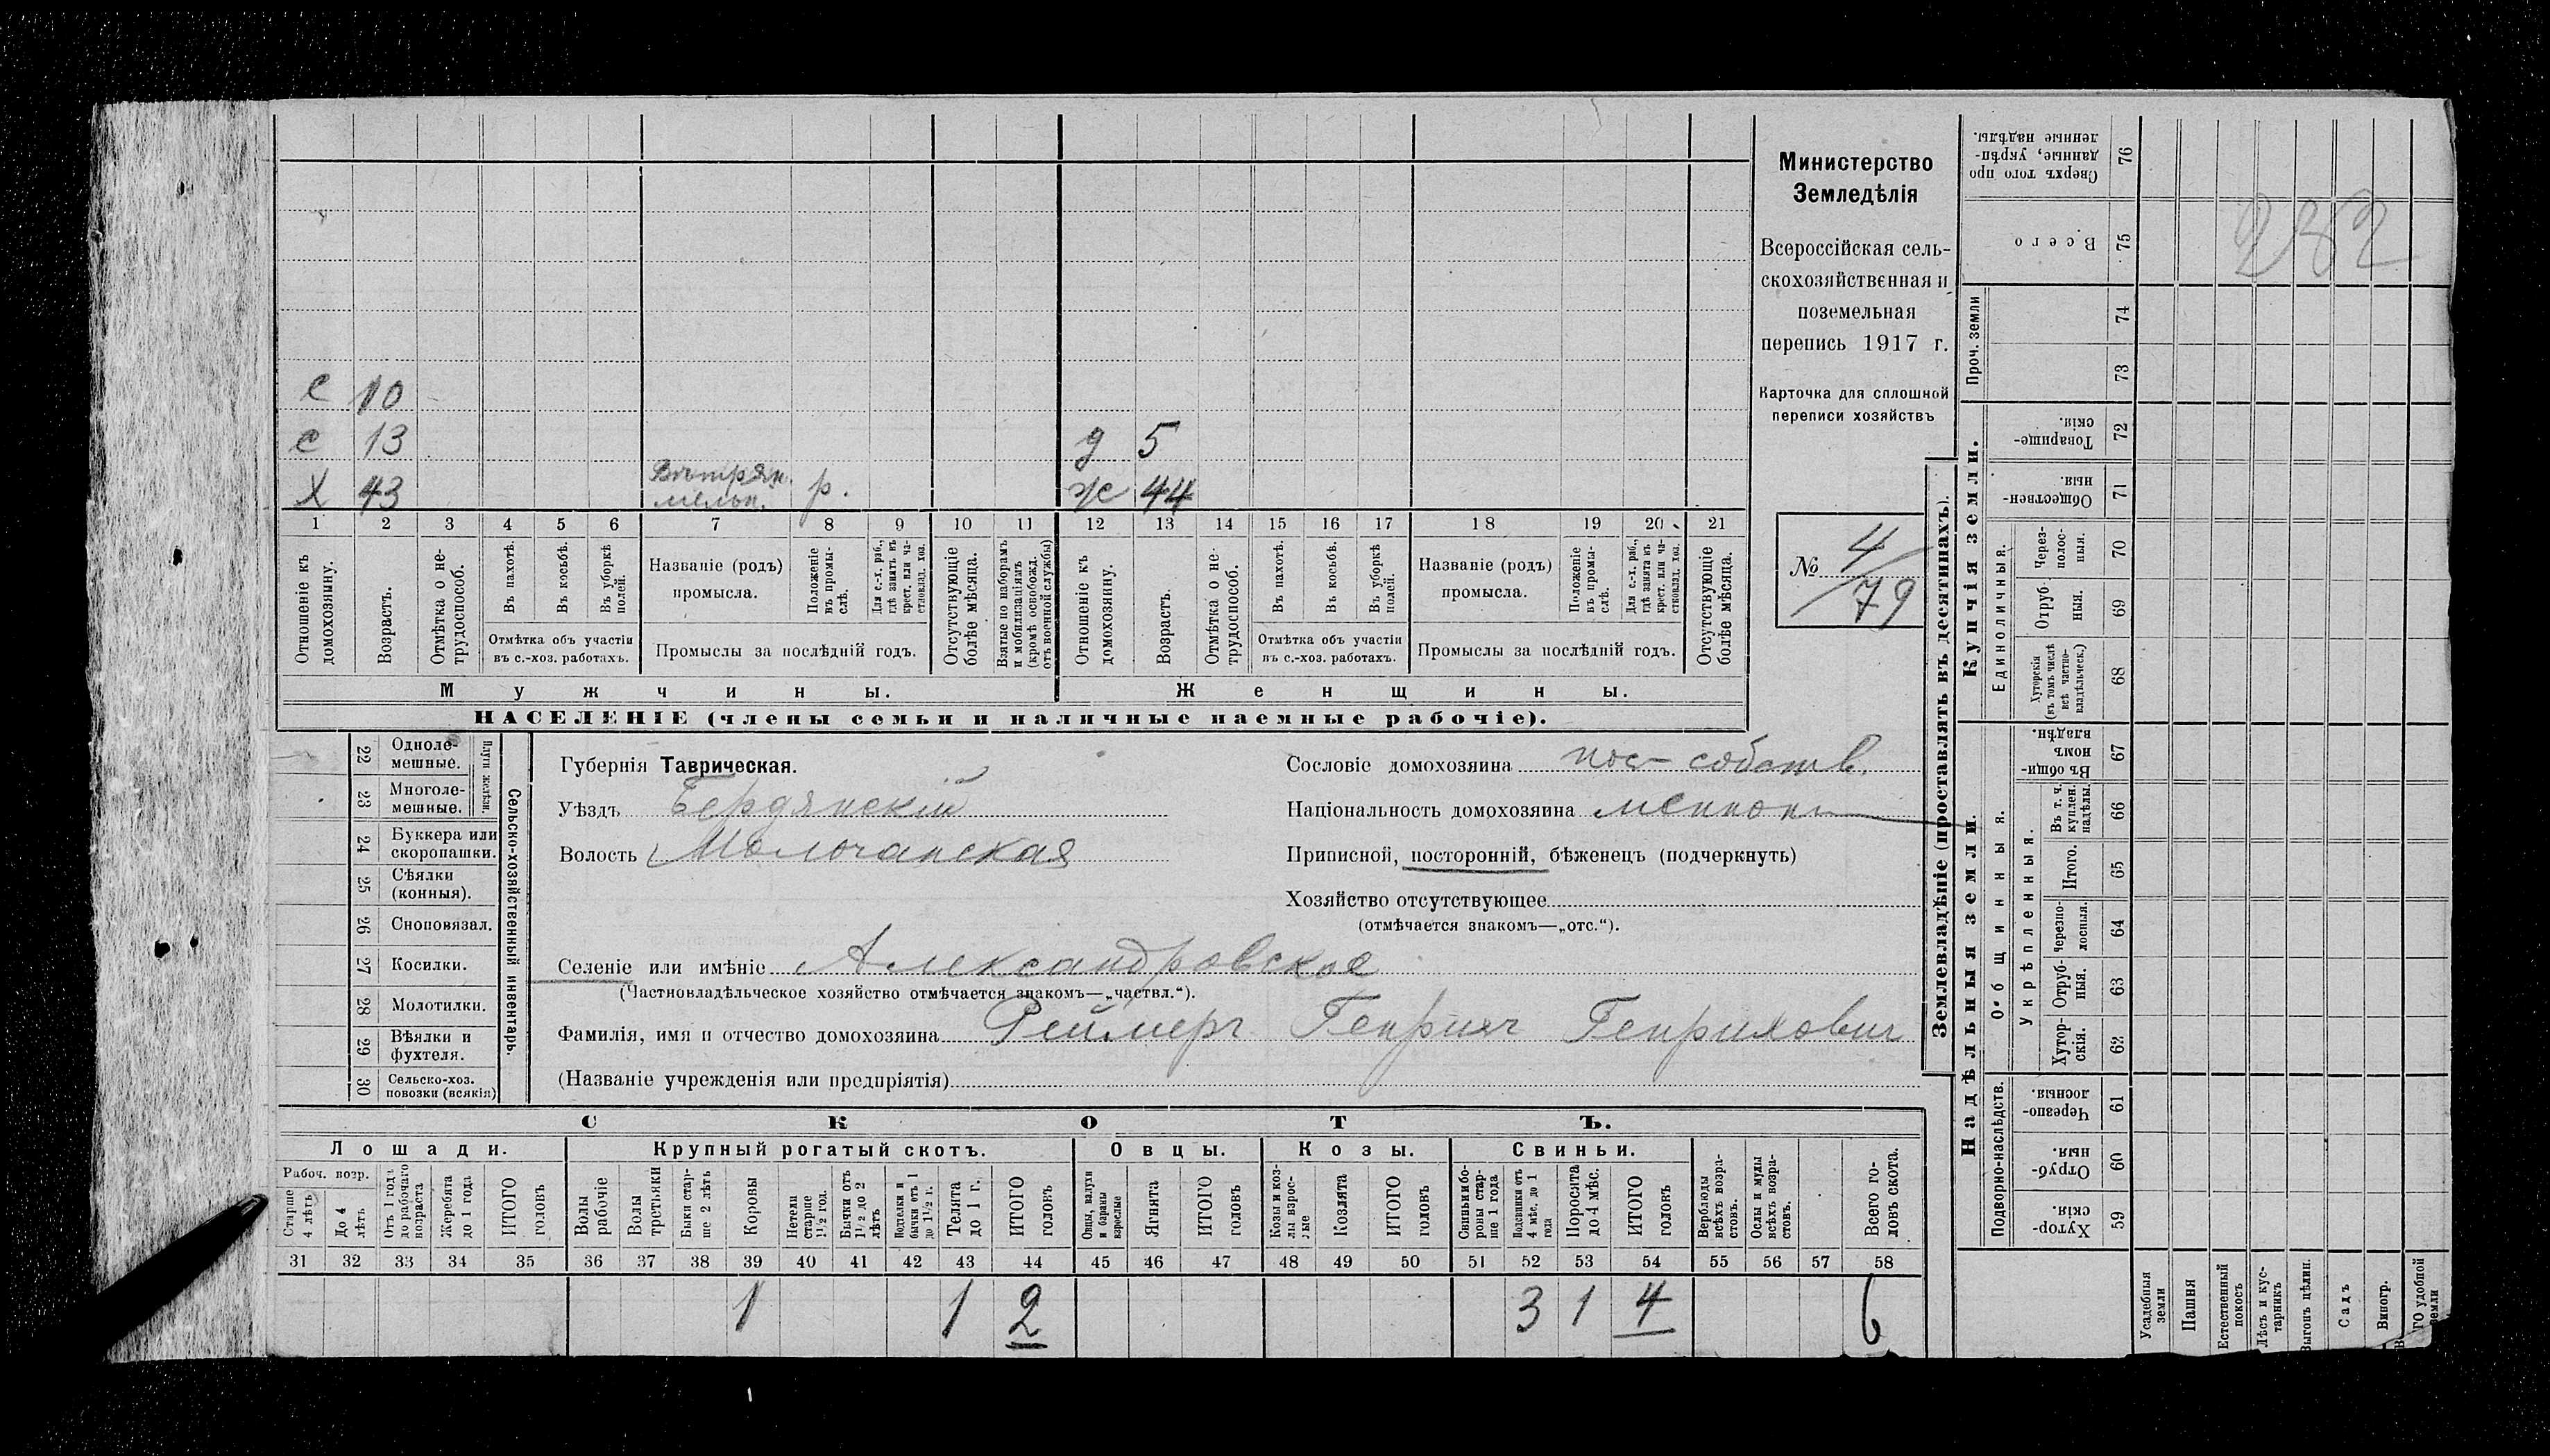 Министерство
Земледѣлія
Всероссійская сель-
скохозяйственная и
поземельная
перепись 1917 г.
Карточка для сплошной
переписи хозяйствъ
№ 4/79
282
с 10
с 13
д 5
Х 43 Вѣтрян. мельн. р.
ж 44
1 2 3 4 5 6 7 8 9 10 11 12 13 14 15 16 17 18 19 20 21
Отношеніе къ домохозяину.
Возрастъ.
Отмѣтка о не-трудоспособ.
Въ пахотѣ.
Въ косьбѣ.
Въ уборкѣ полей.
Отмѣтка объ участіи
въ с.-хоз. работахъ.
Названіе (родъ)
промысла.
Положеніе въ промы-слѣ.
Для с.-х. раб., гдѣ занятъ въ крест. или ча-стновлад. хоз.
Промыслы за послѣдній годъ.
Отсутствующіе болѣе мѣсяца.
Взятые по наборамъ и мобилизаціямъ (кромѣ освобожд. отъ военной службы)
Отношеніе къ домохозяину.
Возрастъ.
Отмѣтка о не-трудоспособ.
Въ пахотѣ.
Въ косьбѣ.
Въ уборкѣ полей.
Отмѣтка объ участіи
въ с.-хоз. работахъ.
Названіе (родъ)
промысла.
Положеніе въ промы-слѣ.
Для с.-х. раб., гдѣ занята въ крест. или ча-стновлад. хоз.
Промыслы за послѣдній годъ.
Отсутствующіе болѣе мѣсяца.
Мужчины.
Женщины.
НАСЕЛЕНІЕ (члены семьи и наличные наемные рабочіе).
Сельско-хозяйственный инвентарь.
Плуги желѣзн.
22 Одноле-мешные.
23 Многоле-мешные.
24 Буккера или скоропашки.
25 Сѣялки (конныя).
26 Сноповязал.
27 Косилки.
28 Молотилки.
29 Вѣялки и фухтеля.
30 Сельско-хоз. повозки (всякія)
Губернія Таврическая.
Уѣздъ Бердянскій
Волость Молочанская
Сословіе домохозяина пос-собств.
Національность домохозяина меннон
Приписной, посторонній, бѣженецъ (подчеркнуть)
Хозяйство отсутствующее
(отмѣчается знакомъ—„отс.“).
Селеніе или имѣніе Александровское
(Частновладѣльческое хозяйство отмѣчается знакомъ—„частвл.“).
Фамилія, имя и отчество домохозяина Реймеръ Генрихъ Генрихович
(Названіе учрежденія или предпріятія)
СКОТЪ.
Лошади.
Крупный рогатый скотъ.
Овцы.
Козы.
Свиньи.
Рабоч. возр.
Старше 4 лѣтъ
До 4 лѣтъ
Отъ 1 года до рабочаго возраста
Жеребята до 1 года
ИТОГО головъ
Волы рабочіе
Волы третьяки
Быки стар-ше 2 лѣтъ
Коровы
Нетели старше 1½ год.
Бычки отъ 1½ до 2 лѣтъ
Подтелки и бычки отъ 1 до 1½ г.
Телята до 1 г.
ИТОГО головъ
Овцы, валухи и бараны взрослые
Ягнята
ИТОГО головъ
Козы и коз-лы взрос-лые
Козлята
ИТОГО головъ
Свиньи и бо-ровы стар-ше 1 года
Подсвинки отъ 4 мѣс. до 1 года
Поросята до 4 мѣс.
ИТОГО головъ
Верблюды всѣхъ возра-стовъ.
Ослы и мулы всѣхъ возра-стовъ.
Всего го-ловъ скота.
31 32 33 34 35 36 37 38 39 40 41 42 43 44 45 46 47 48 49 50 51 52 53 54 55 56 57 58
1 1 2 3 1 4 6
Землевладѣніе (проставлять въ десятинахъ).
Надѣльныя земли.
Купчія земли.
Проч. земли
Подворно-наслѣдств.
Общинныя.
Укрѣпленныя.
Единоличныя.
Хутор-скія. 59
Отруб-ныя. 60
Черезпо-лосныя 61
Хутор-скія. 62
Отруб-ныя. 63
Черезпо-лосныя. 64
Итого. 65
Въ т. ч. куплен. надѣлы. 66
Въ общин-номъ владѣн. 67
Хуторскія (въ томъ числѣ всѣ частно-владѣльческ.) 68
Отруб-ныя. 69
Через-полос-ныя. 70
Обществен-ныя. 71
Товарище-скія. 72
73
74
Всего 75
Сверхъ того про-данные, укрѣп-ленные надѣлы. 76
Усадебныя земли
Пашня
Естественный покосъ
Лѣсъ и кус-тарникъ
Выгонъ цѣлин.
Садъ
Виногр.
ГО удобной земли